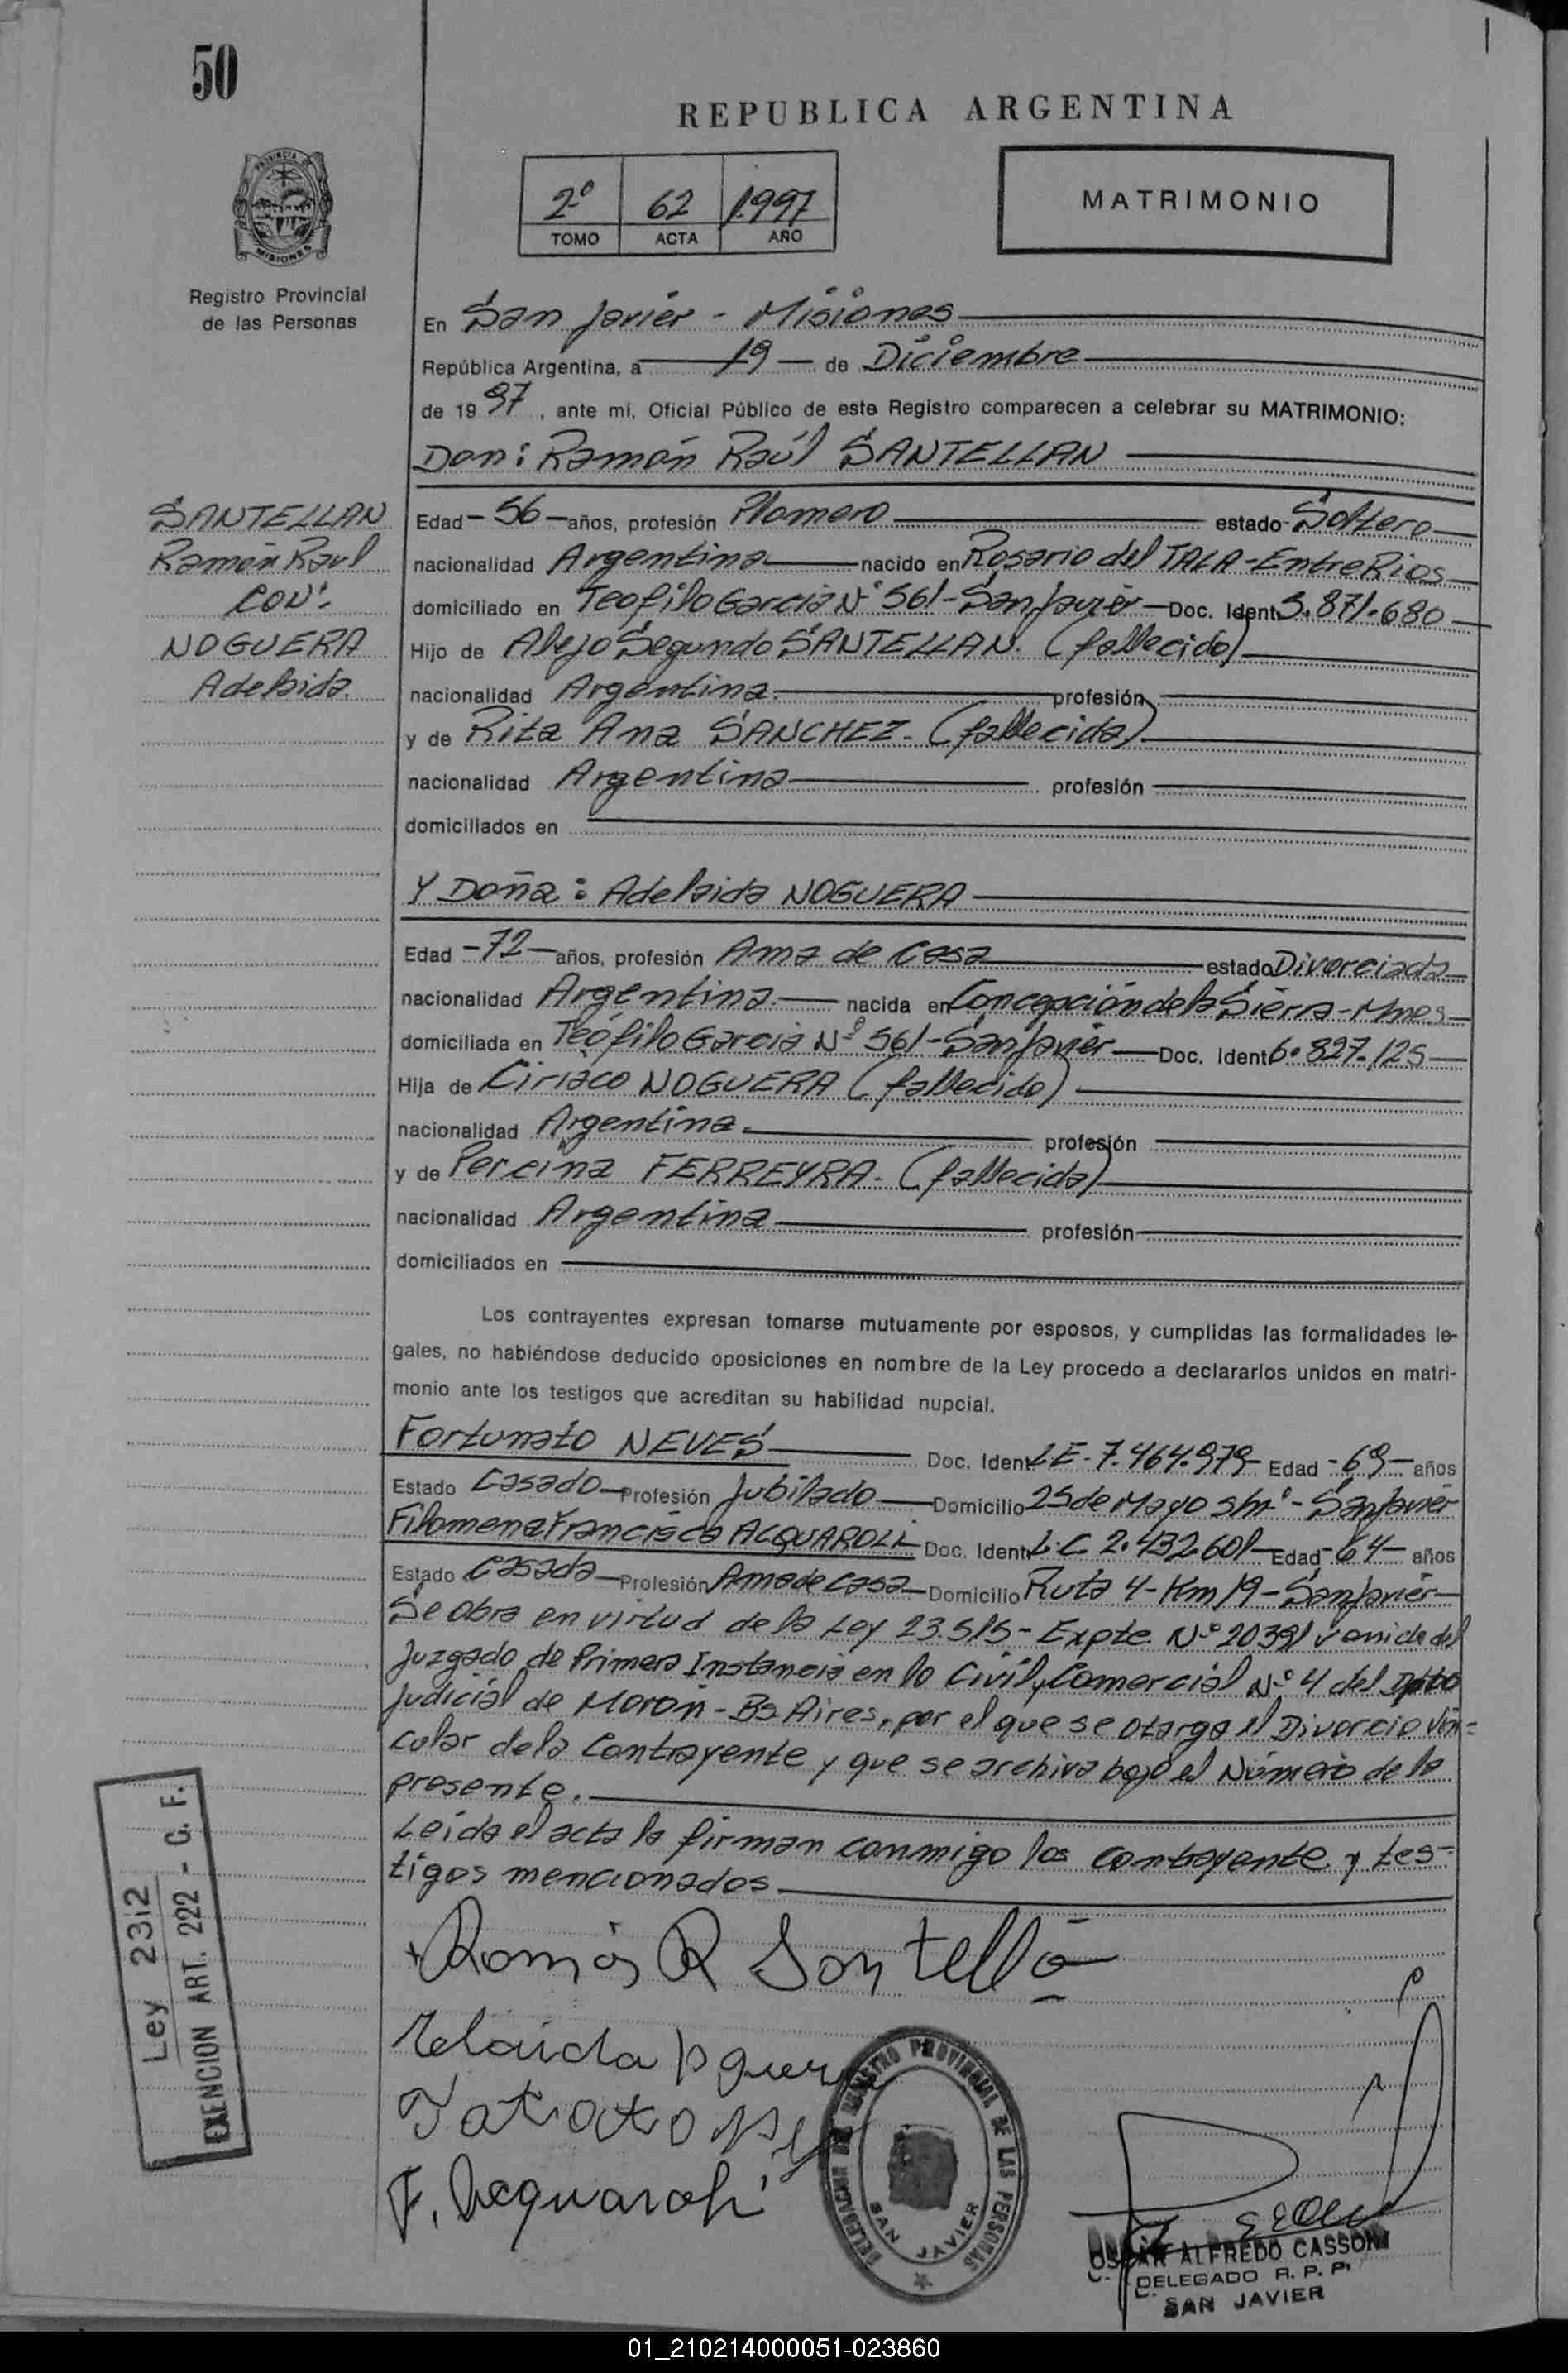 50
REPUBLICA ARGENTINA
2º 62 1.997
TOMO ACTA AÑO
MATRIMONIO
PROVINCIA DE
MISIONES
Registro Provincial
de las Personas
En San Javier - Misiones
República Argentina, a 19 de Diciembre
de 19 97, ante mí, Oficial Público de este Registro comparecen a celebrar su MATRIMONIO:
Don: Ramón Raúl SANTELLAN
SANTELLAN
Ramón Raul
CON:
NOGUERA
Adelaida.
Edad - 56 - años, profesión Plomero estado Soltero
nacionalidad Argentina nacido en Rosario del TALA - Entre Rios
domiciliado en Teofilo Garcia Nº 561 - San Javier - Doc. Ident. 5.871.680
Hijo de Alejo Segundo SANTELLAN. (fallecido)
nacionalidad Argentina. profesión
y de Rita Ana SANCHEZ. (fallecida)
nacionalidad Argentina profesión
domiciliados en
Y Doña: Adelaida NOGUERA
Edad - 72 - años, profesión Ama de Casa estado Divorciada
nacionalidad Argentina. nacida en Concepción de la Sierra - Mnes
domiciliada en Teófilo Garcia Nº 561 - San Javier - Doc. Ident 6.827.125
Hija de Ciriaco NOGUERA (fallecido)
nacionalidad Argentina. profesión
y de Percina FERREYRA. (fallecida)
nacionalidad Argentina profesión
domiciliados en
Los contrayentes expresan tomarse mutuamente por esposos, y cumplidas las formalidades le-
gales, no habiéndose deducido oposiciones en nombre de la Ley procedo a declararlos unidos en matri-
monio ante los testigos que acreditan su habilidad nupcial.
Fortunato NEVES Doc. Ident L.E. 7.464.979 Edad - 69 - años
Estado Casado Profesión Jubilado Domicilio 25 de Mayo s/nº - San Javier
Filomena Francisca ACQUAROLI Doc. Ident L.C 2.432.601 Edad - 64 - años
Estado Casada Profesión Ama de Casa Domicilio Ruta 4 - Km 19 - San Javier
Se obra en virtud de la Ley 23.515 - Expte. Nº 20391 venida del
Juzgado de Primera Instancia en lo Civil y Comercial Nº 4 del Dpto
Judicial de Morón - Bs Aires, por el que se otorga el Divorcio Vin=
cular de la Contrayente y que se archiva bajo el Número de la
presente.
Leida el acta la firman conmigo los contrayente y tes=
tigos mencionados
Ley 2312
EXENCION ART. 222 - C. F.
Ramón R Santellá
F. Acquaroli
DELEGACION DEL REGISTRO PROVINCIAL DE LAS PERSONAS
SAN JAVIER
OSCAR ALFREDO CASSONI
DELEGADO R. P. P.
SAN JAVIER
01_210214000051-023860